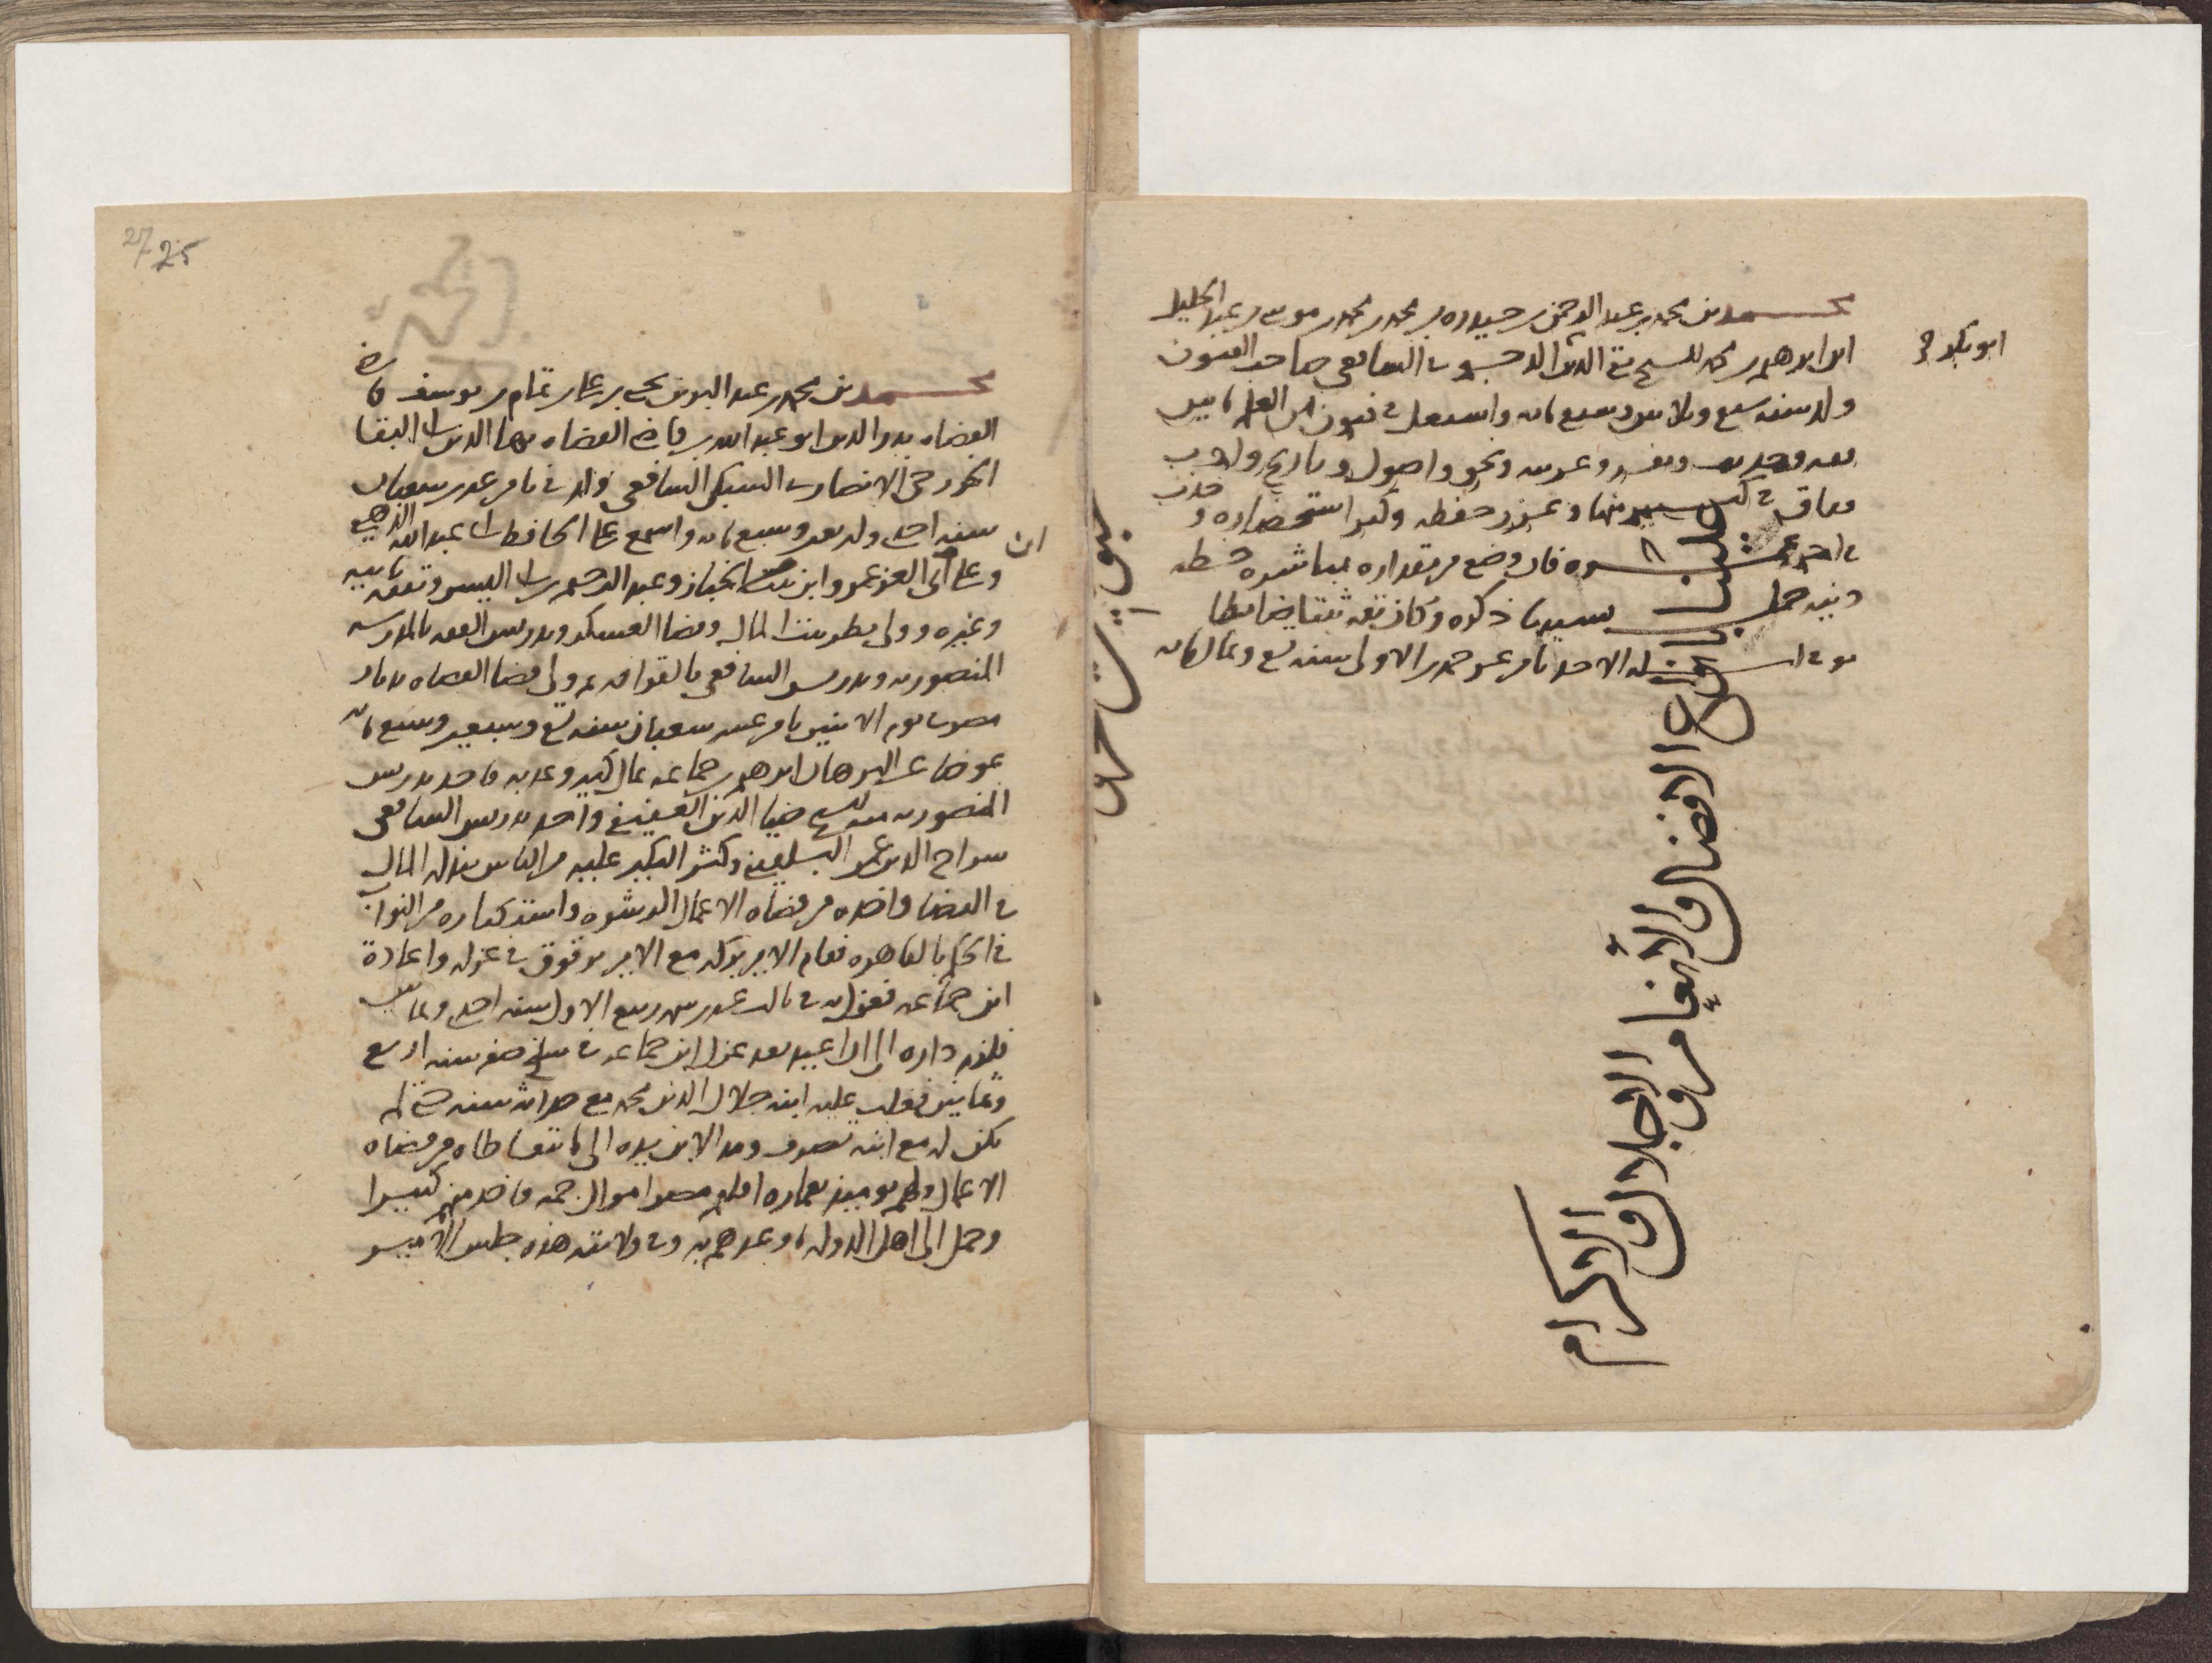 محمد بن محمد بن عبد الرحمن بن حيدره بن محمد بن محمد بن موسى بن عبد الجليل
ابن ابراهيم بن محمد الشيخ تقي الدين الدجوي الشافعي صاحب الفنون
ابو بكر
ولد سنه سبع وثلاثين وسبع مايه واشتغل في فنون من العلم ما بين
فقه وحديث وتفسير وعربيه ونحو واصول وتاريخ وادب
ففاق في كثير منها وغزر حفظه وكثر استحضاره وحدث
في اخر عمره فان وضع من مقداره مباشره شطه
دينيه حمل بسببها ذكره وكان ثقه ثبتا ضابطا
توفي ليله الاحد ثامن عشر جمدى الاولى سنه تسع وثمانمايه
علينا بانواع الافضال والانعام والاجلال والاكرام
27 25
محمد بن محمد بن عبد البر بن يحيى بن علي بن تمام بن يوسف قاضي
القضاه بدر الدين ابو عبد الله بن قاضي القضاه بهاء الدين ابي البقا
الخزرجي الانصاري السبكي الشافعي ولد في ثامن عشر شعبان
سنه احدى واربعين وسبع مايه واسمع على الحافظ ابي عبد الله الذهبي
وعلى ابن العز عمر وابن الخباز وعبد الرحيم بن ابي اليسر وتفقه بابيه
وغيره وولي نظر بيت المال وقضا العسكر وتدريس الفقه بالمدرسه
المنصوريه وتدريس الشافعي بالقرافه ثم ولي قضا القضاه بديار
مصر يوم الاثنين ثامن عشر شعبان سنه تسع وسبعين وسبع مايه
عوضا عن البرهان ابراهيم بن جماعه بمال كبير وعد به فاخذ تدريس
المنصوريه منه الشيخ ضيا الدين العفيفي واخذ تدريس الشافعي
سراج الدين عمر البلقيني وكثر النكير عليه من الناس ببذله المال
في القضا واخذه من قضاه الاعمال الرشوه واستكثاره من النواب
في الحكم بالقاهره فقام الامير بركه مع الامير برقوق في عزله واعادة
ابن جماعه فعزل به في ثالث عشر من ربيع الاول سنه احدى وثمانين
فلزم داره الى ان اعيد بعد عزل ابن جماعه في سلخ صفر سنه اربع
وثمانين فغلب عليه ابنه جلال الدين محمد مع حداثه سنه حتى لم
يكن له مع ابنه تصرف ومد الابن يده الى ما يتعاطاه من قضاه
الاعمال ولهم يوميذ بعماره اقليم مصر اموال جمه فاخذ منهم كثيرا
وحمل الى اهل الدوله ما وعدهم به وفي ولايته هذه جلس الامير